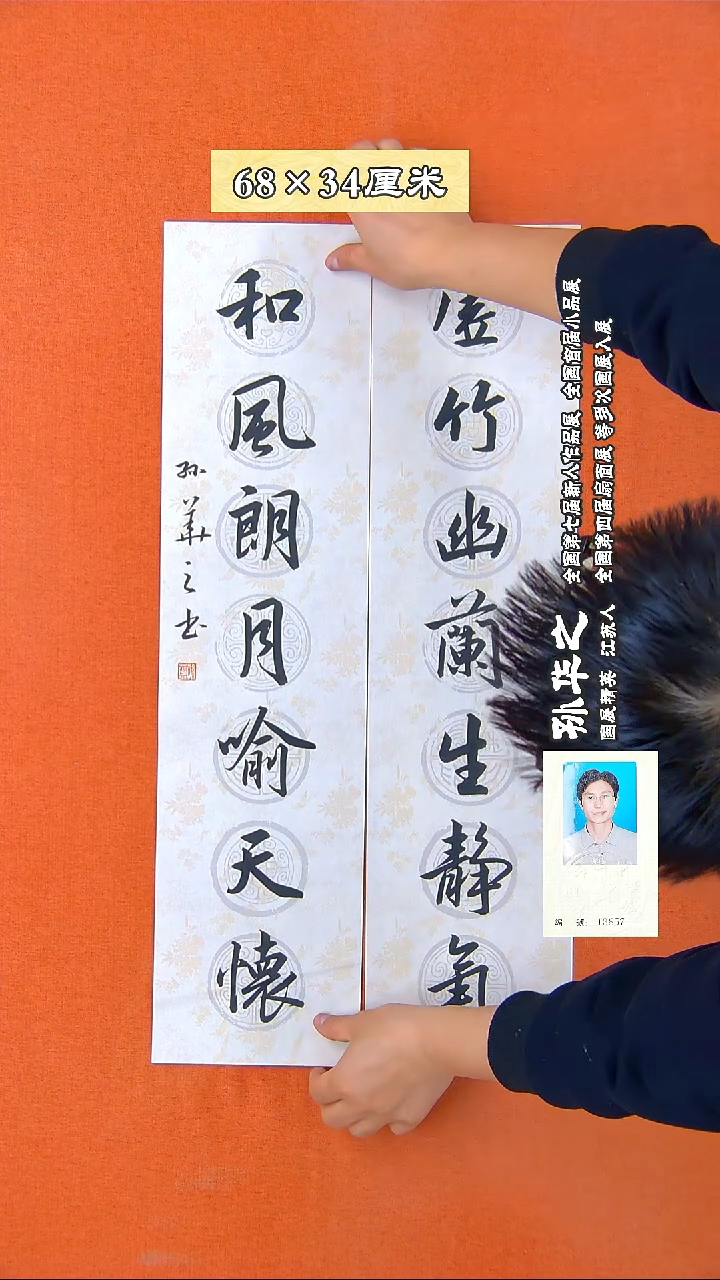 68×34厘米
虚竹幽蘭生靜氣
和風朗月喻天懷
孙華之书
孙华之
國展精英 江苏人
全國第七届新人作品展 全國首届小品展
全國第四届扇面展 等多次國展入展
编 號: 13857